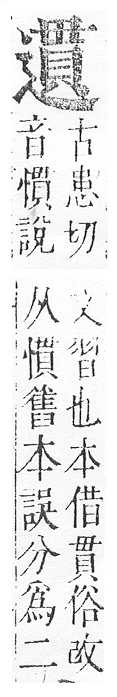 遦
古患切
音慣說
文習也本借貫俗改
从慣舊本誤分爲二